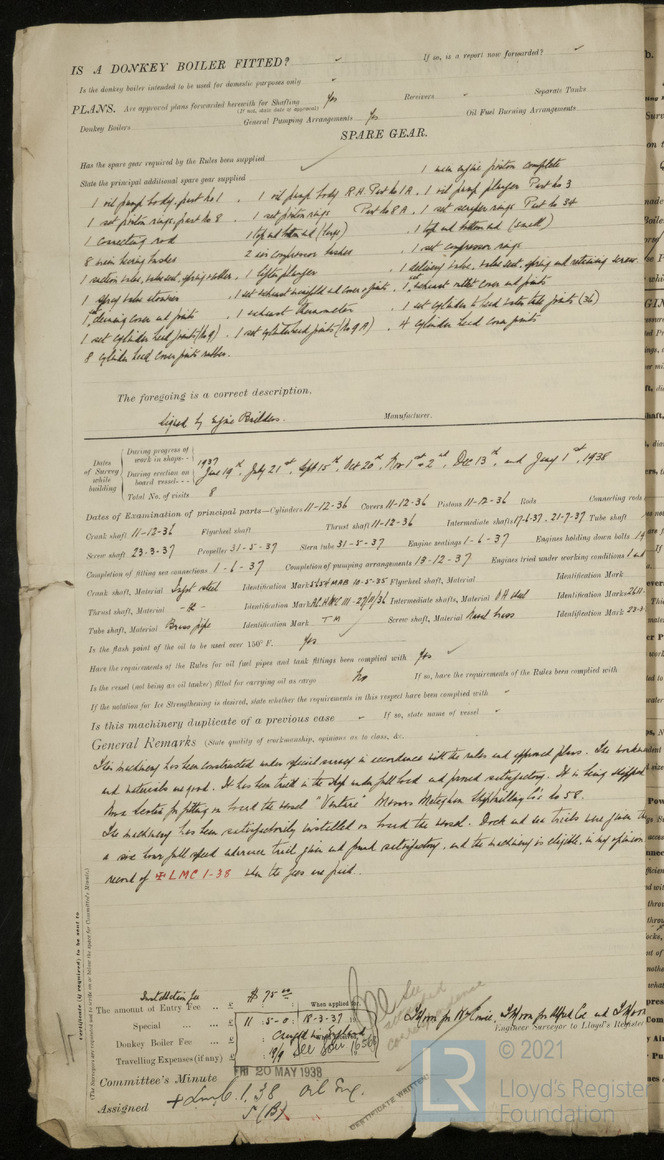 IS A DONKEY BOILER FITTED? If so, is a report now forwarded?
Is the donkey boiler intended to be used for domestic purposes only
PLANS. Are approved plans forwarded herewith for Shafting Yes Receivers Separate Tanks
(If not, state date of approval)
Donkey Boilers General Pumping Arrangements Yes Oil Fuel Burning Arrangements
SPARE GEAR.
Has the spare gear required by the Rules been supplied
State the principal additional spare gear supplied 1 main engine piston complete
1 oil pump body, part no 1 . 1 oil pump body R.H. Part No 1A . 1 oil pump plunger Part no 3
1 set piston rings, part no 8 . 1 set piston rings Part No 8A . 1 set scraper rings Part No 34
1 connecting rod 1 top end bottom end (large) . 1 top end bottom end (small)
8 main bearing bushes 2 air compressor bushes . 1 set compressor rings
1 suction valve, valve seat, spring . 1 delivery valve, valve seat, spring and retaining screw
1 spray valve . 1 set exhaust manifold end cover joints . 1 set exhaust outlet cover end joints
1 set cleaning cover end joints . 1 exhaust thermometer . 1 set cylinder to head water tube joints (36)
1 set cylinder head joints . 1 set cylinder head joints . 4 cylinder head cover joints
8 cylinder head cover joints rubber.
The foregoing is a correct description.
Signed by Engine Builders. Manufacturer.
Dates of Survey while building
During progress of work in shops--
During erection on board vessel---
Total No. of visits 8
1937 June 19th, July 21st, Sept 15th, Oct 20th, Nov 1st & 2nd, Dec 13th, and Jany 1st, 1938
Dates of Examination of principal parts—Cylinders 11-12-36 Covers 11-12-36 Pistons 11-12-36 Rods Connecting rods
Crank shaft 11-12-36 Flywheel shaft Thrust shaft 11-12-36 Intermediate shafts 17-6-37, 21-7-37 Tube shaft
Screw shaft 23-3-37 Propeller 31-5-37 Stern tube 31-5-37 Engine seatings 1-6-37 Engines holding down bolts
Completion of fitting sea connections 1-6-37 Completion of pumping arrangements 13-12-37 Engines tried under working conditions
Crank shaft, Material Ingot steel Identification Mark 5654 MAB 10-5-35 Flywheel shaft, Material Identification Mark
Thrust shaft, Material - do - Identification Mark Intermediate shafts, Material O H steel Identification Marks
Tube shaft, Material Brass pipe Identification Mark T M Screw shaft, Material Naval brass Identification Mark
Is the flash point of the oil to be used over 150° F. Yes
Have the requirements of the Rules for oil fuel pipes and tank fittings been complied with Yes
Is the vessel (not being an oil tanker) fitted for carrying oil as cargo No If so, have the requirements of the Rules been complied with
If the notation for Ice Strengthening is desired, state whether the requirements in this respect have been complied with
Is this machinery duplicate of a previous case If so, state name of vessel
General Remarks (State quality of workmanship, opinions as to class, &c.
This machinery has been constructed under special survey in accordance with the rules and approved plans. The
and materials are good. It has been tried in the shop under full load and proved satisfactory. It is being shipped
Nova Scotia for fitting on board the vessel "Venture" Messrs Meteghan Shipbuilding Co's No 58.
The machinery has been satisfactorily installed on board the vessel. Dock and sea trials were given
a six hour full speed endurance trial given and found satisfactory, and the machinery is eligible, in my opinion
record of ✠ LMC 1-38 when the fees are paid.
Certificate (if required) to be sent to
(The Surveyors are requested not to write on or below the space for Committee's Minute.)
Installation fee $ 75.00
The amount of Entry Fee .. £ : : When applied for,
Special ... £ 11 : 5 - 0 : 18-3-37
Donkey Boiler Fee ... £
Travelling Expenses (if any) £ 19/9
See attached correspondence
Engineer Surveyor to Lloyd's Register
Committee's Minute FRI 20 MAY 1938
Assigned + LMC 1.38 Oil Eng.
5 (B)
CERTIFICATE WRITTEN
© 2021
LR
Lloyd's Register
Foundation